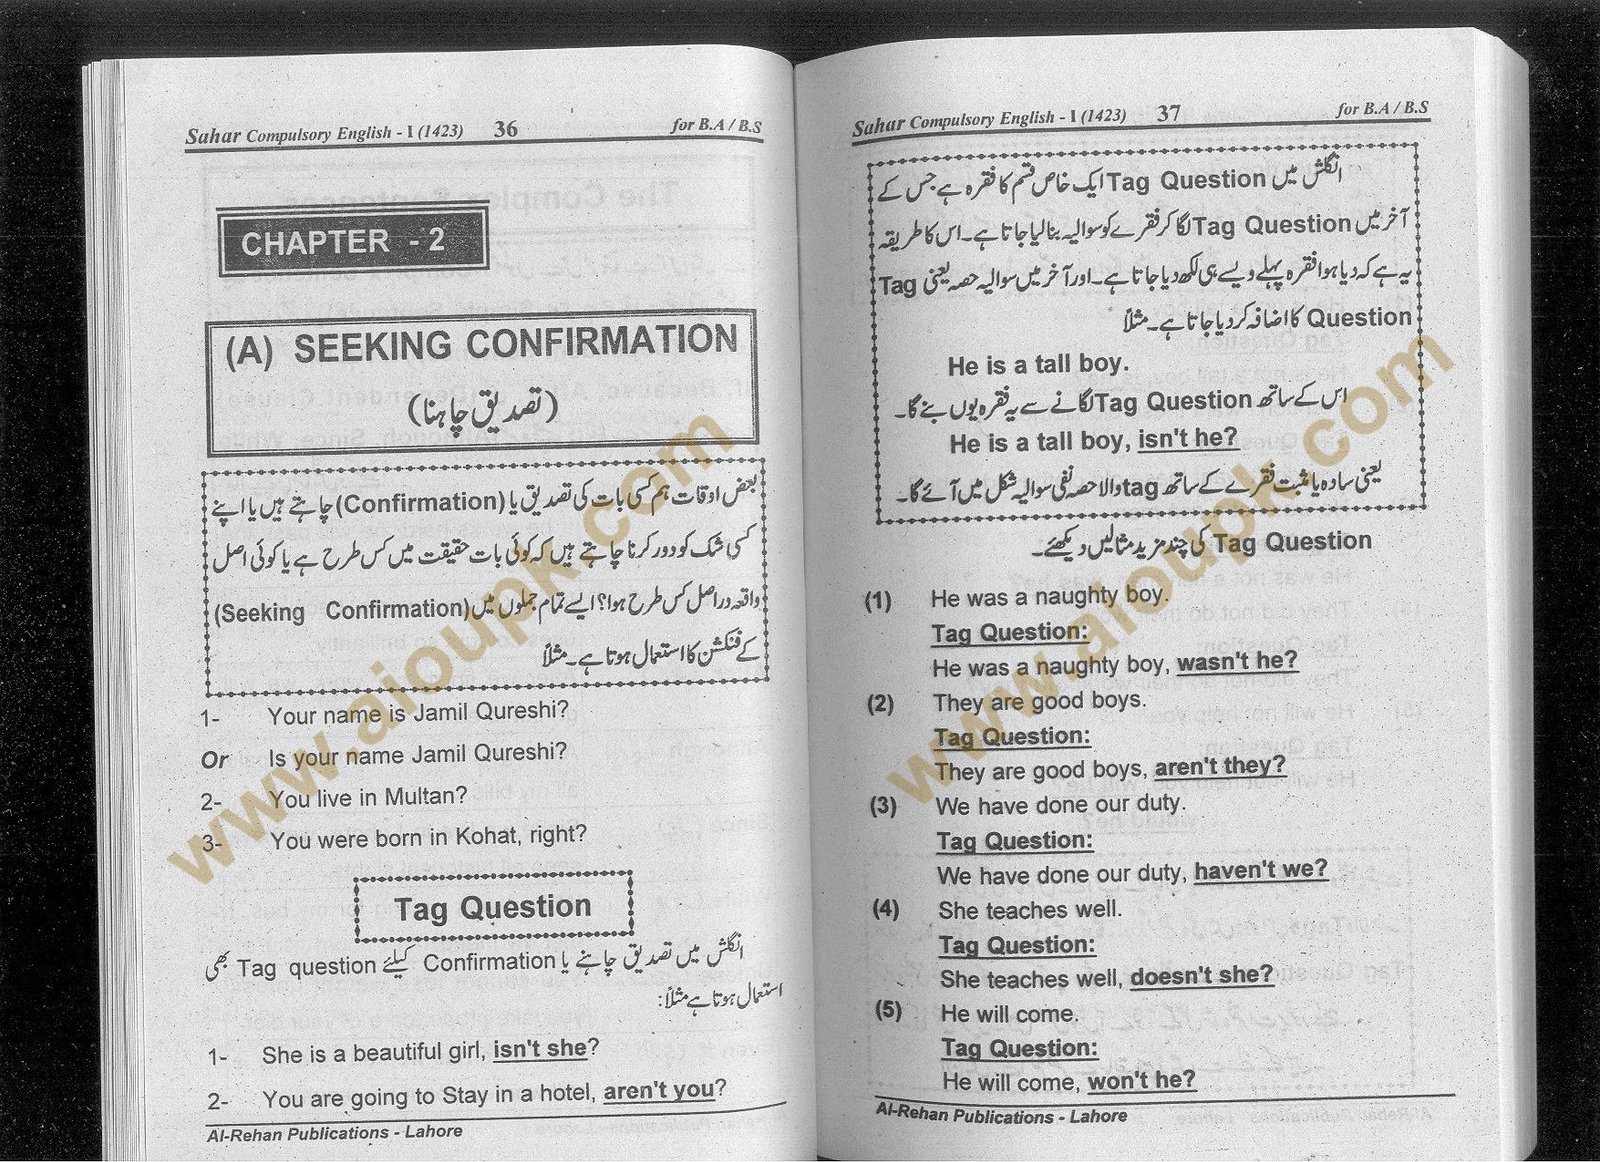 Sahar Compulsory English - I (1423) 36 for B.A / B.S
CHAPTER - 2
(A) SEEKING CONFIRMATION
(تصدیق چاہنا)
بعض اوقات ہم کسی بات کی تصدیق یا (Confirmation) چاہتے ہیں یا اپنے
کسی شک کو دور کرنا چاہتے ہیں کہ کوئی بات حقیقت میں کس طرح ہے یا کوئی اصل
واقعہ دراصل کس طرح ہوا؟ ایسے تمام جملوں میں (Seeking Confirmation)
کے فنکشن کا استعمال ہوتا ہے۔ مثلاً
1- Your name is Jamil Qureshi?
Or Is your name Jamil Qureshi?
2- You live in Multan?
3- You were born in Kohat, right?
Tag Question
انگلش میں تصدیق چاہنے یا Confirmation کیلئے Tag question بھی
استعمال ہوتا ہے مثلاً:
1- She is a beautiful girl, isn't she?
2- You are going to Stay in a hotel, aren't you?
Al-Rehan Publications - Lahore
www.aioupk.com
Sahar Compulsory English - I (1423) 37 for B.A / B.S
انگلش میں Tag Question ایک خاص قسم کا فقرہ ہے جس کے
آخر میں Tag Question لگا کر فقرے کو سوالیہ بنا لیا جاتا ہے۔ اس کا طریقہ
یہ ہے کہ دیا ہوا فقرہ پہلے ویسے ہی لکھ دیا جاتا ہے۔ اور آخر میں سوالیہ حصہ یعنی Tag
Question کا اضافہ کر دیا جاتا ہے۔ مثلاً
He is a tall boy.
اس کے ساتھ Tag Question لگانے سے یہ فقرہ یوں بنے گا۔
He is a tall boy, isn't he?
یعنی سادہ یا مثبت فقرے کے ساتھ tag والا حصہ نفی سوالیہ شکل میں آئے گا۔
Tag Question کی چند مزید مثالیں دیکھئے۔
(1) He was a naughty boy.
Tag Question:
He was a naughty boy, wasn't he?
(2) They are good boys.
Tag Question:
They are good boys, aren't they?
(3) We have done our duty.
Tag Question:
We have done our duty, haven't we?
(4) She teaches well.
Tag Question:
She teaches well, doesn't she?
(5) He will come.
Tag Question:
He will come, won't he?
Al-Rehan Publications - Lahore
www.aioupk.com